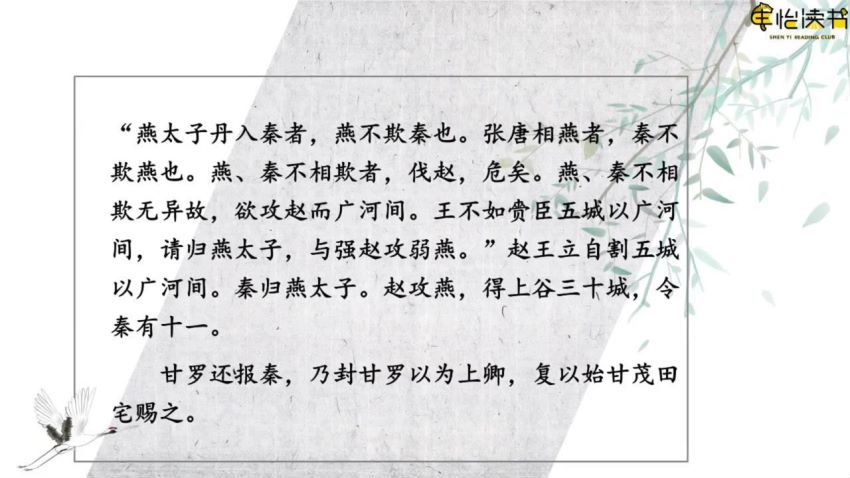 羊怡读书
SHEN YI READING CLUB
“燕太子丹入秦者，燕不欺秦也。张唐相燕者，秦不
欺燕也。燕、秦不相欺者，伐赵，危矣。燕、秦不相
欺无异故，欲攻赵而广河间。王不如赍臣五城以广河
间，请归燕太子，与强赵攻弱燕。”赵王立自割五城
以广河间。秦归燕太子。赵攻燕，得上谷三十城，令
秦有十一。
甘罗还报秦，乃封甘罗以为上卿，复以始甘茂田
宅赐之。